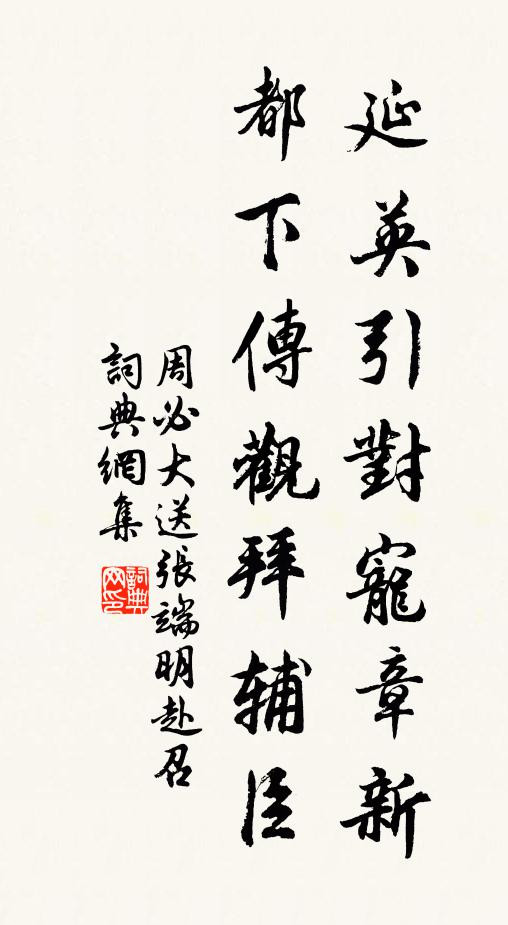 延英引對寵章新
都下傳觀拜輔臣
周必大送張端明赴召
詞典網集
詞典網印